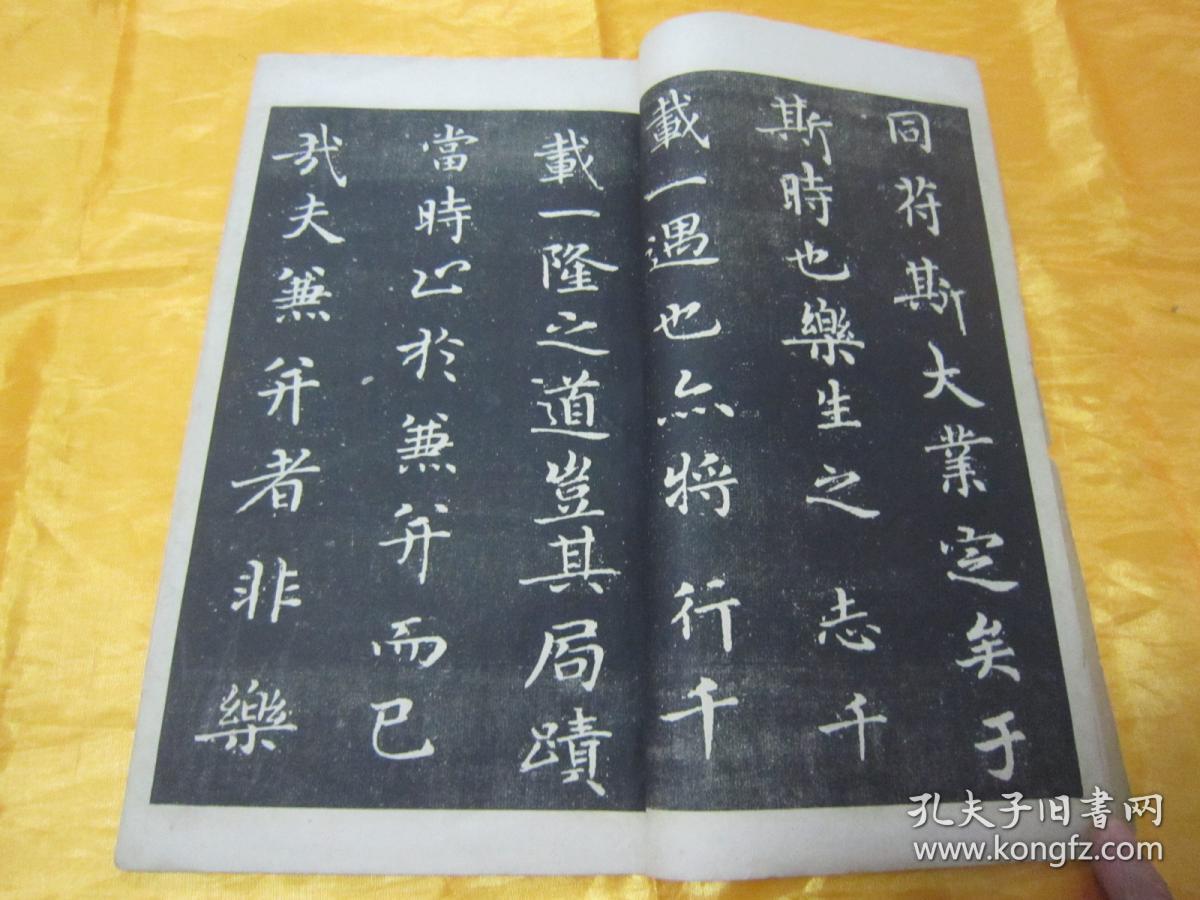 同符斯大業定矣于
斯時也樂生之志千
載一遇也亦將行千
載一隆之道豈其局蹟
當時止於兼并而已
哉夫兼并者非樂
孔夫子旧書网
www.kongfz.com